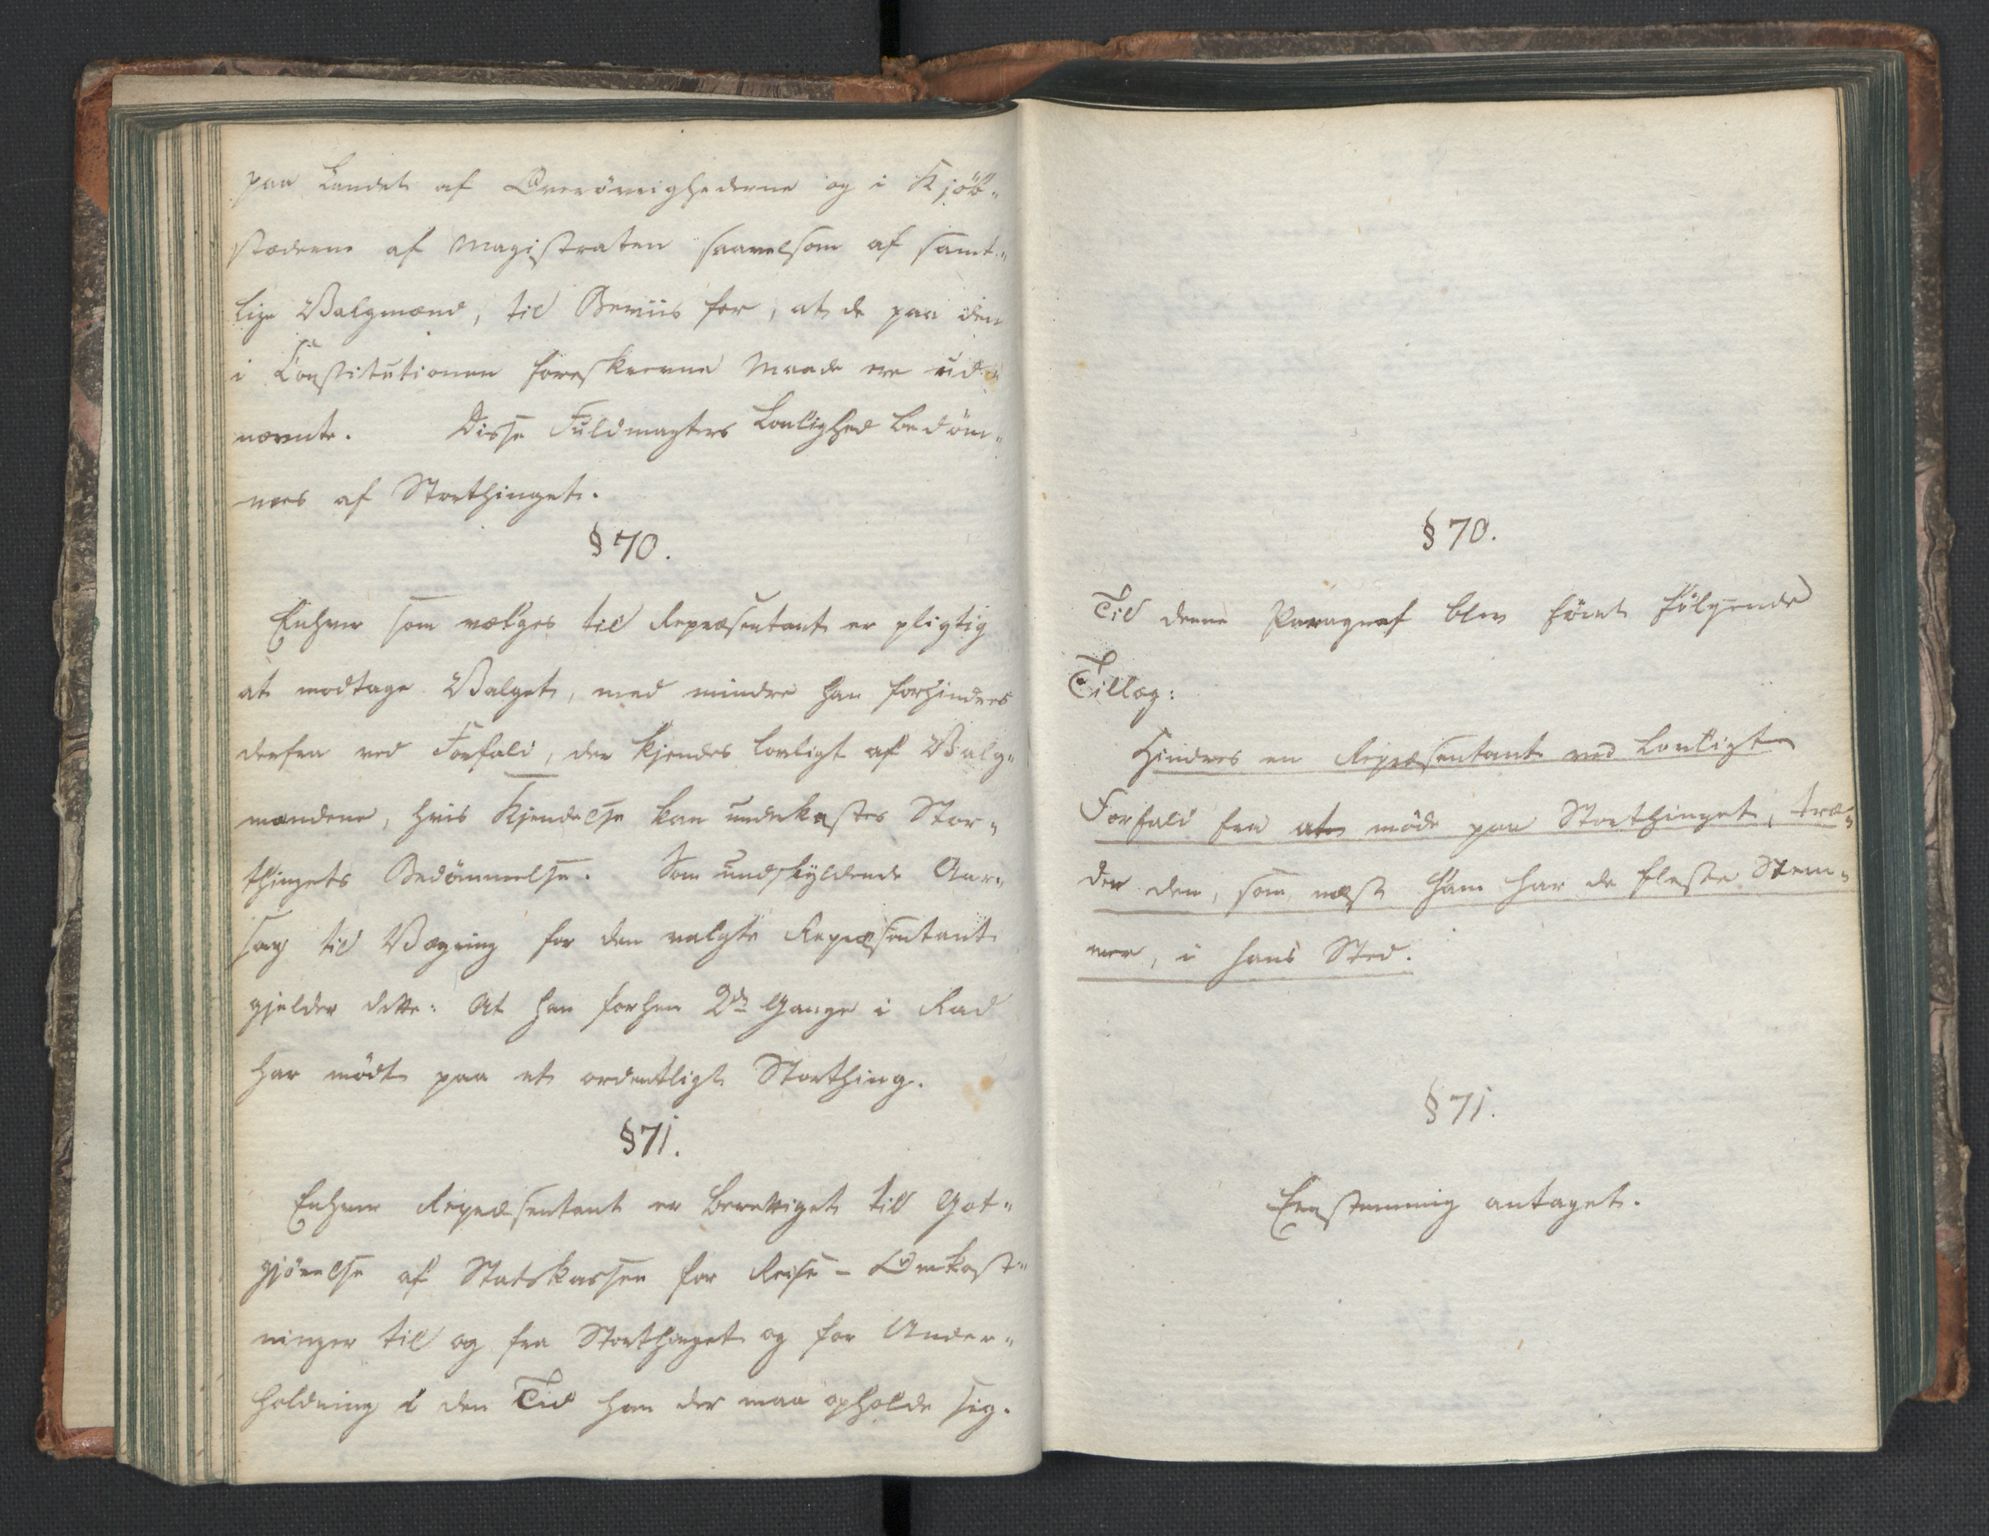 paa Landet af Overövrighederne og i Kjöb-
stæderne af Magistraten saavelsom af samt-
lige Valgmænd, til Beviis for, at de paa den
i Constitutionen foreskrevne Maade ere ud-
nævnte. Disse Fuldmagters Lovlighed bedöm-
mes af Storthinget.
§ 70.
Enhver som vælges til Repræsentant er pligtig
at modtage Valget, med mindre han forhindres
derfra ved Forfald, der kjendes lovligt af Valg-
mændene, hvis Kjendelse kan underkastes Stor-
thingets Bedömmelse. Som undskyldende Aar-
sag til Vægring for den valgte Repræsentant
gjelder dette: At han forhen 2de Gange i Rad
har mödt paa et ordentligt Storthing.
§ 71.
Enhver Repræsentant er berettiget til Got-
gjörelse af Statskassen for Reise-Omkost-
ninger til og fra Storthinget og for Under-
holdning i den Tid han der maa opholde sig.
§ 70.
Til denne Paragraf blev föiet fölgende
Tillæg:
Hindres en Repræsentant ved lovligt
Forfald fra at möde paa Storthinget, træ-
der den, som næst ham har de fleste Stem-
mer, i hans Sted.
§ 71.
Eenstemmig antaget.